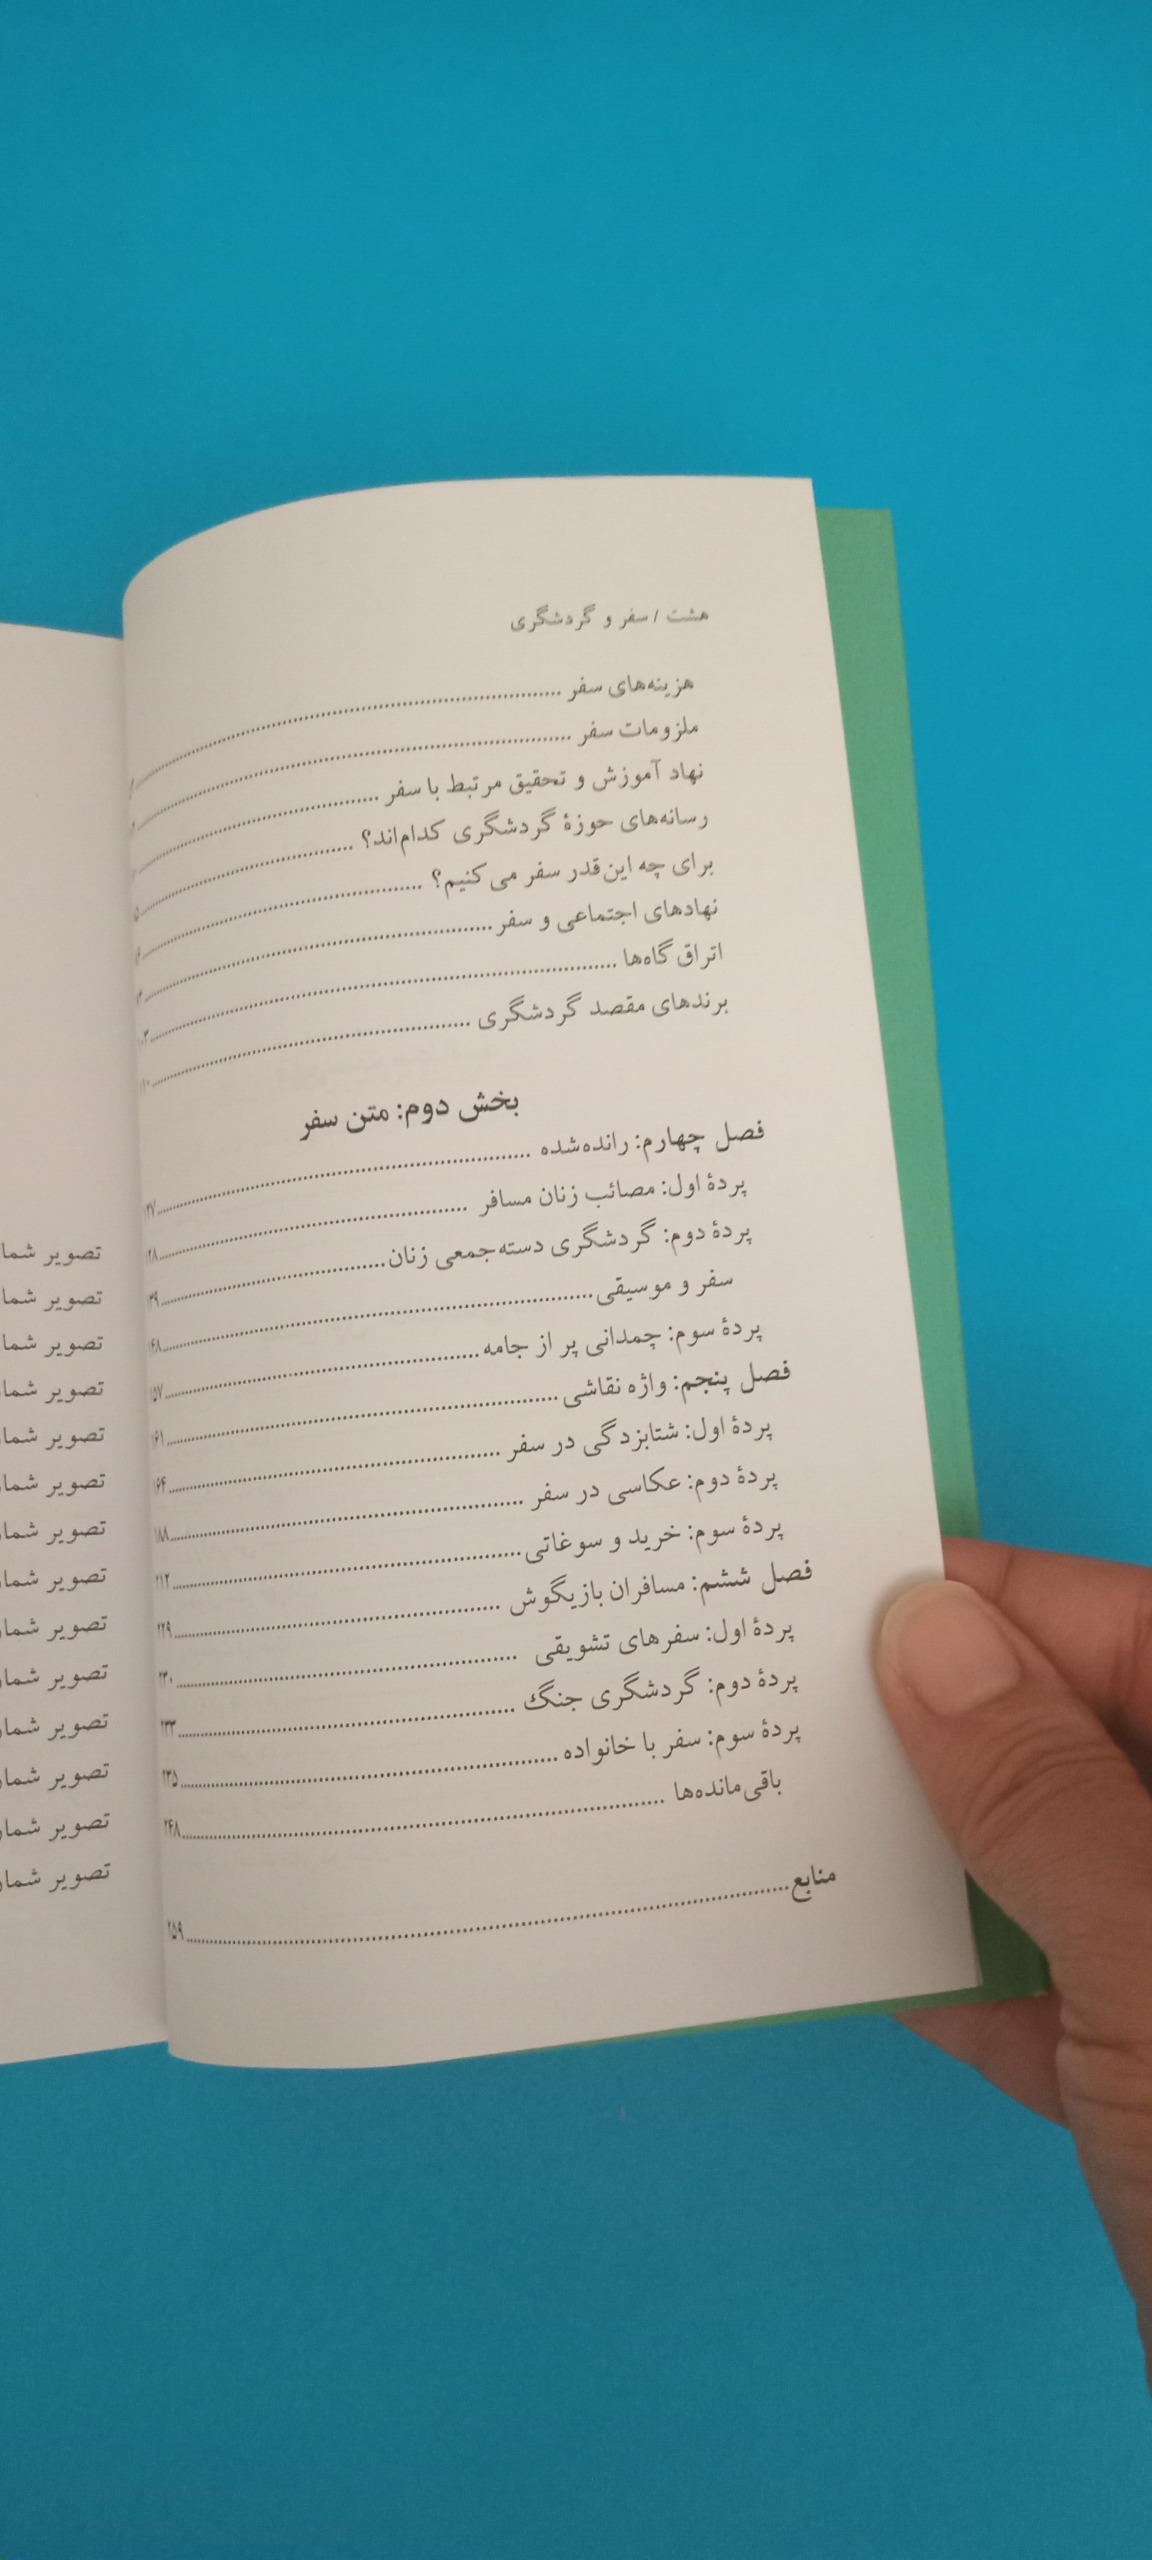 هشت / سفر و گردشگری
هزینه‌های سفر
ملزومات سفر
نهاد آموزش و تحقیق مرتبط با سفر
رسانه‌های حوزهٔ گردشگری کدام‌اند؟
برای چه این‌قدر سفر می‌کنیم؟
نهادهای اجتماعی و سفر
اتراق‌گاه‌ها ........ ۱۰۳
برندهای مقصد گردشگری ........ ۱۱۰
بخش دوم: متن سفر
فصل چهارم: رانده‌شده ........ ۱۲۷
پردهٔ اول: مصائب زنان مسافر ........ ۱۲۸
پردهٔ دوم: گردشگری دسته‌جمعی زنان ........ ۱۳۹
سفر و موسیقی ........ ۱۴۸
پردهٔ سوم: چمدانی پر از جامه ........ ۱۵۷
فصل پنجم: واژه نقاشی ........ ۱۶۱
پردهٔ اول: شتابزدگی در سفر ........ ۱۶۴
پردهٔ دوم: عکاسی در سفر ........ ۱۸۸
پردهٔ سوم: خرید و سوغاتی ........ ۲۱۲
فصل ششم: مسافران بازیگوش ........ ۲۲۹
پردهٔ اول: سفرهای تشویقی ........ ۲۳۰
پردهٔ دوم: گردشگری جنگ ........ ۲۳۳
پردهٔ سوم: سفر با خانواده ........ ۲۳۵
باقی‌مانده‌ها ........ ۲۴۸
منابع ........ ۲۵۹
تصویر
تصویر
تصویر
تصویر
تصویر
تصویر
تصویر
تصویر
تصویر
تصویر
تصویر
تصویر
تصویر
تصویر